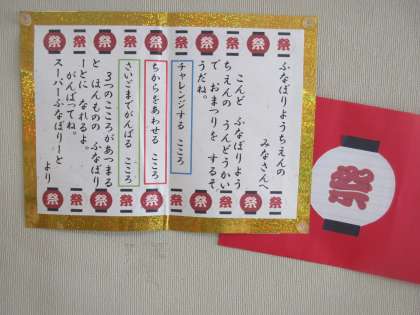 祭 祭 祭 祭 祭 祭 祭 祭 祭
ふなぼりようちえんの
みなさんへ
こんど ふなぼりよう
ちえんの うんどうかい
で おまつりを するそ
うだね。
チャレンジする こころ
ちからをあわせる こころ
さいごまでがんばる こころ
３つのこころがあつまる
と ほんものの ふなぼり
ーとに なれるよ。
がんばってね。
スーパーふなぼりーと
より
祭 祭 祭 祭 祭 祭 祭 祭 祭
祭